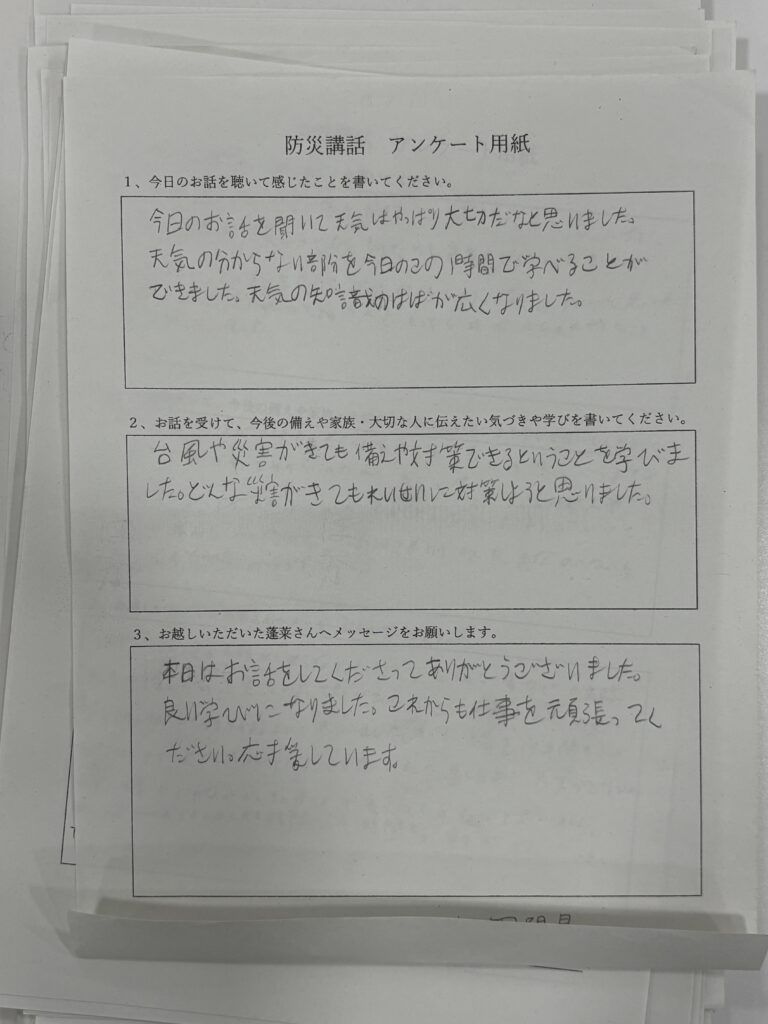 防災講話　アンケート用紙
１、今日のお話を聴いて感じたことを書いてください。
今日のお話を聞いて天気はやっぱり大切だなと思いました。
天気の分からない部分を今日のこの1時間で学べることが
できました。天気の知識のはばが広くなりました。
２、お話を受けて、今後の備えや家族・大切な人に伝えたい気づきや学びを書いてください。
台風や災害がきても備えや対策できるということを学びま
した。どんな災害がきてもれいせいに対策しようと思いました。
３、お越しいただいた蓬莱さんへメッセージをお願いします。
本日はお話をしてくださってありがとうございました。
良い学びになりました。これからも仕事を頑張ってく
ださい。応援しています。